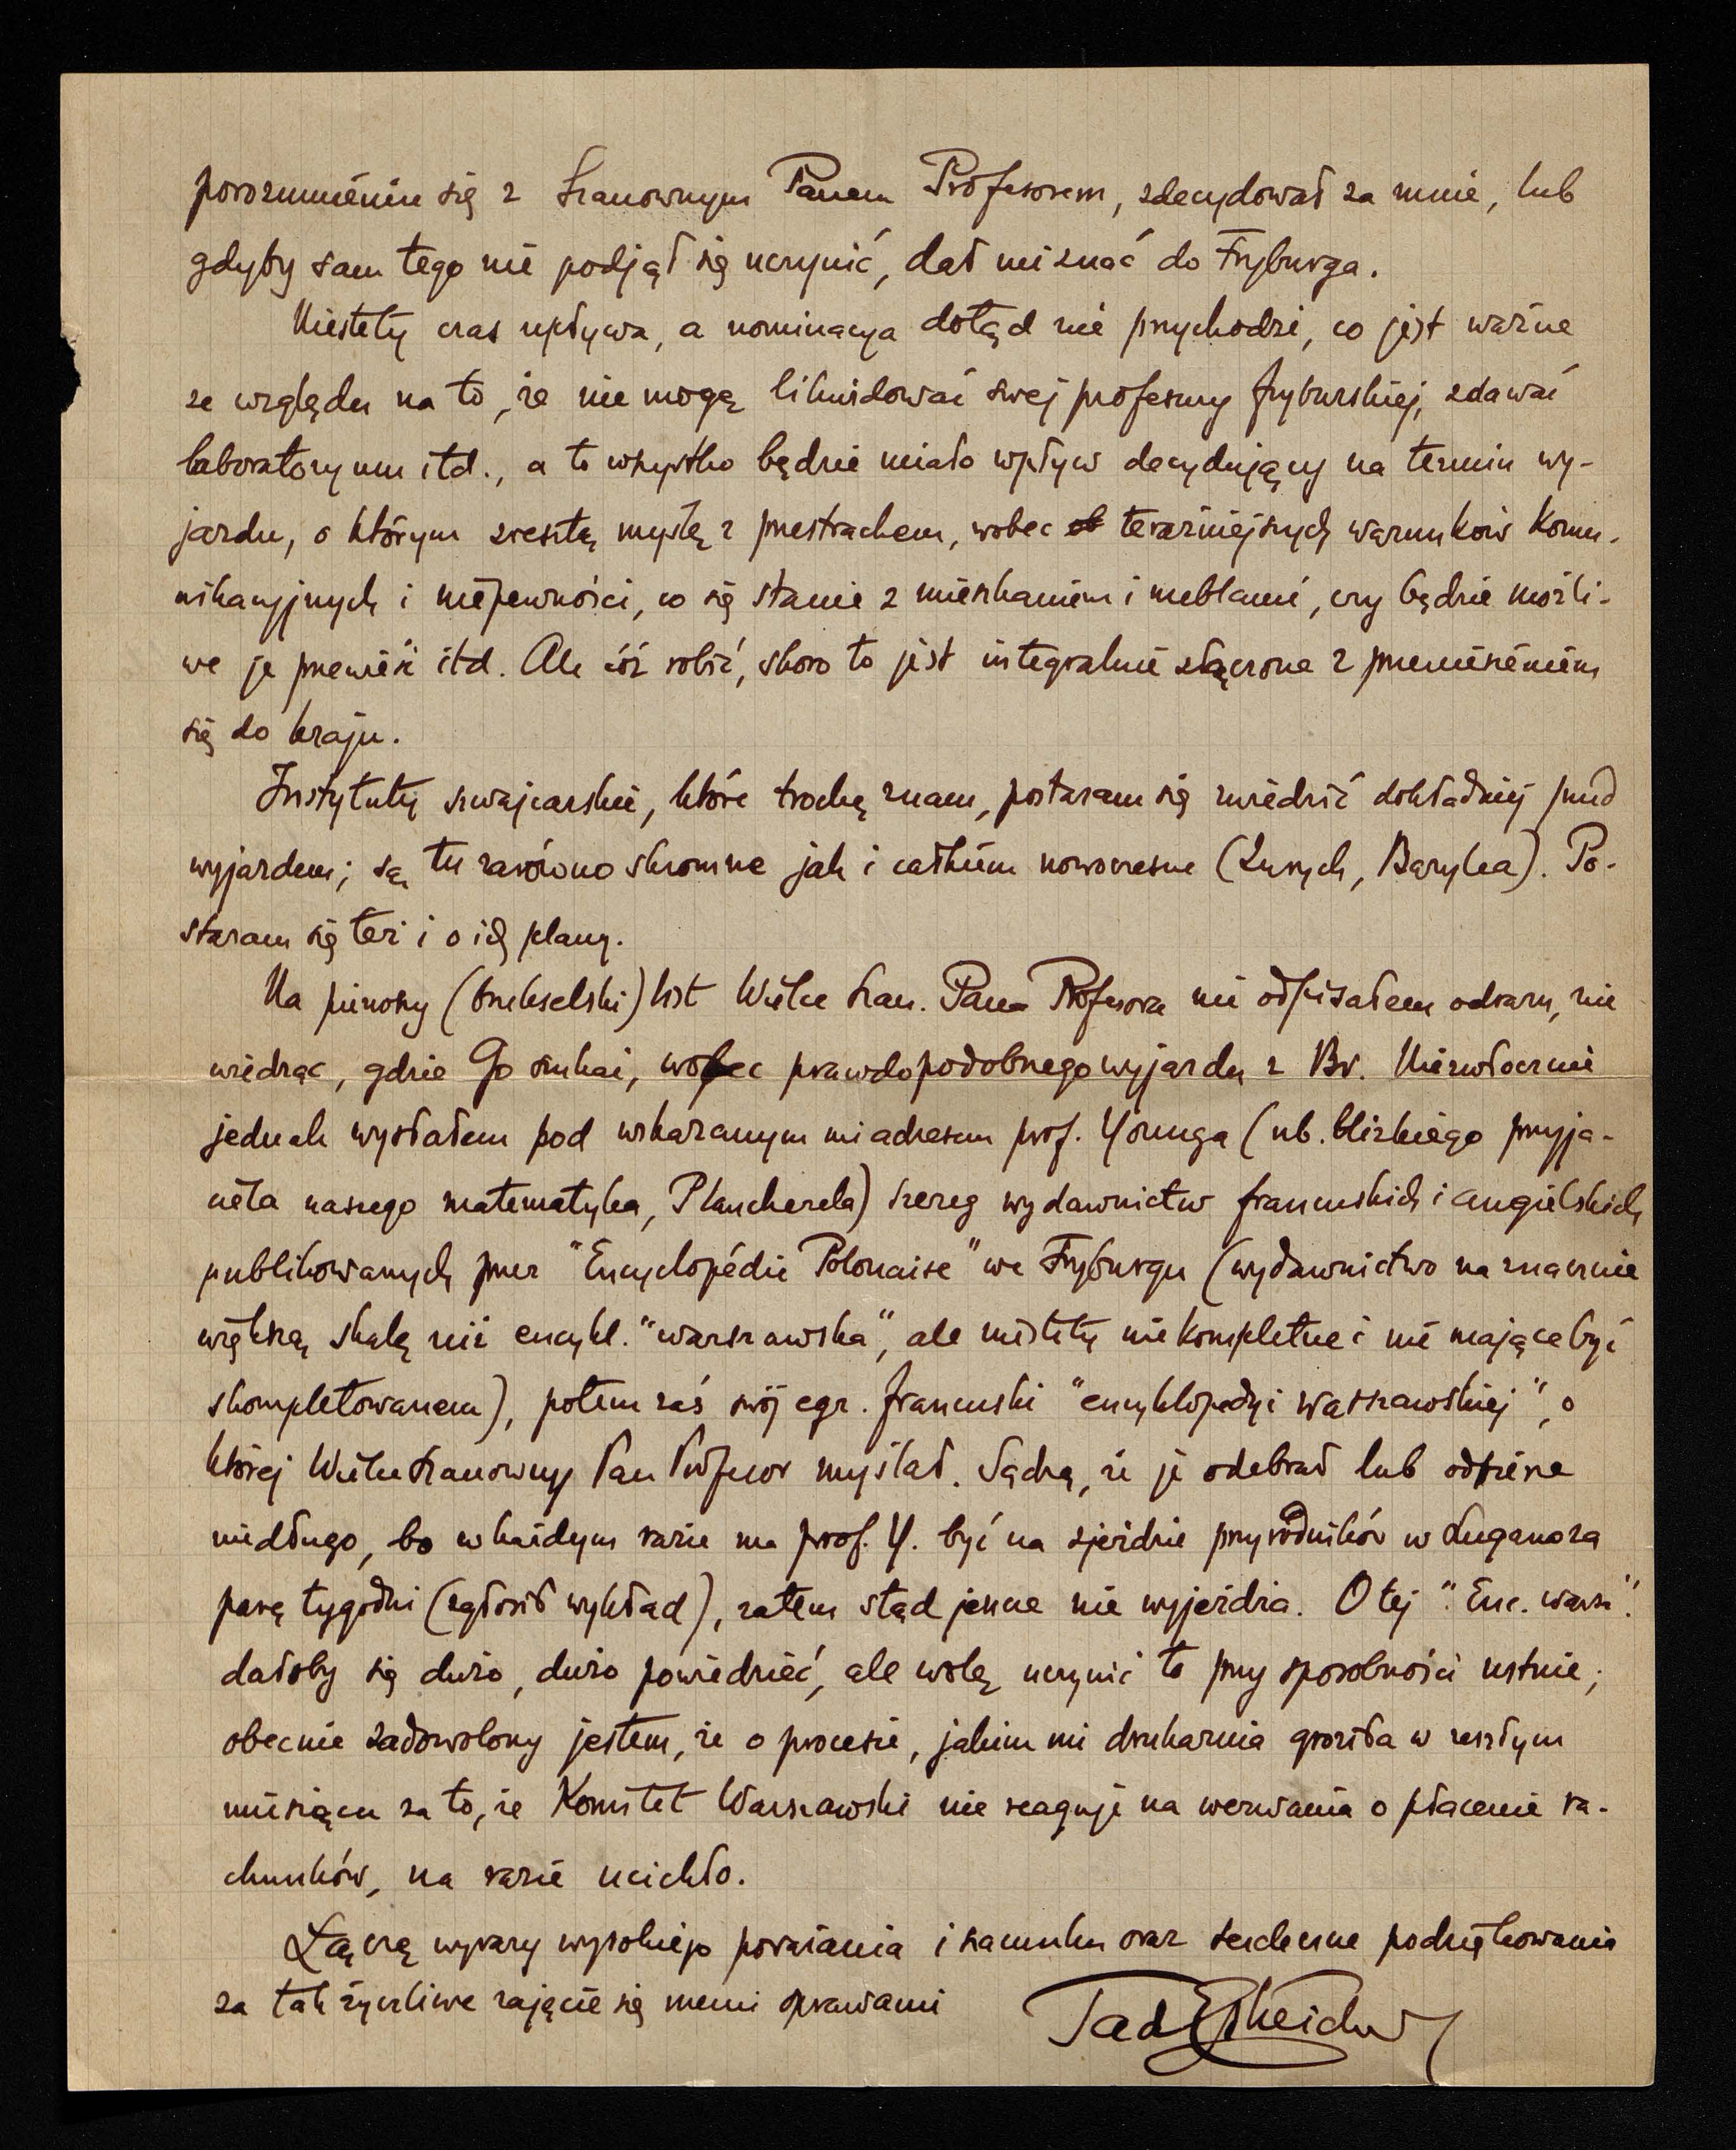 porozumieniu się z Szanownym Panem Profesorem, zdecydował za mnie, lub
gdyby sam tego nie podjął się uczynić, dał mi znać do Fryburga.
Niestety czas upływa, a nominacya dotąd nie przychodzi, co jest ważne
ze względu na to, że nie mogę likwidować swej profesury fryburskiej, zdawać
laboratoryum itd., a to wszystko będzie miało wpływ decydujący na termin wy-
jazdu, o którym zresztą myślę z przestrachem, wobec teraźniejszych warunków komu-
nikacyjnych i niepewności, co się stanie z mieszkaniem i meblami, czy będzie możli-
we je przewieść itd. Ale cóż robić, skoro to jest integralnie złączone z przeniesieniem
się do kraju.
Instytuty szwajcarskie, które trochę znam, postaram się zwiedzić dokładniej przed
wyjazdem; są tu zarówno skromne jak i całkiem nowoczesne (Zurych, Bazylea). Po-
staram się też i o ich plany.
Na pierwszy (brukselski) list Wielce Szan. Pana Profesora nie odpisałem odrazu, nie
wiedząc, gdzie Go szukać, wobec prawdopodobnego wyjazdu z Br. Niezwłocznie
jednak wysłałem pod wskazanym mi adresem prof. Younga (nb. blizkiego przyja-
ciela naszego matematyka, Plancherela) szereg wydawnictw francuskich i angielskich
publikowanych przez "Encyclopédie Polonaise" we Fryburgu (wydawnictwo na znacznie
większą skalę niż encykl. "warszawska", ale niestety niekompletne i nie mające być
skompletowanem), potem zaś swój egz. francuski "encyklopedyi warszawskiej", o
której Wielce Szanowny Pan Profesor myślał. Sądzę, że je odebrał lub odbierze
niedługo, bo w każdym razie ma prof. Y. być na zjeździe przyrodników w Lugano za
parę tygodni (zgłosił wykład), zatem stąd jeszcze nie wyjeżdża. O tej "Enc. warsz".
dałoby się dużo, dużo powiedzieć, ale wolę uczynić to przy sposobności ustnie;
obecnie zadowolony jestem, że o procesie, jakim mi drukarnia groziła w zeszłym
miesiącu za to, że Komitet Warszawski nie reaguje na wezwania o płacenie ra-
chunków, na razie ucichło.
Łączę wyrazy wysokiego poważania i szacunku oraz serdeczne podziękowania
za tak życzliwe zajęcie się memi sprawami
Tad Estreicher